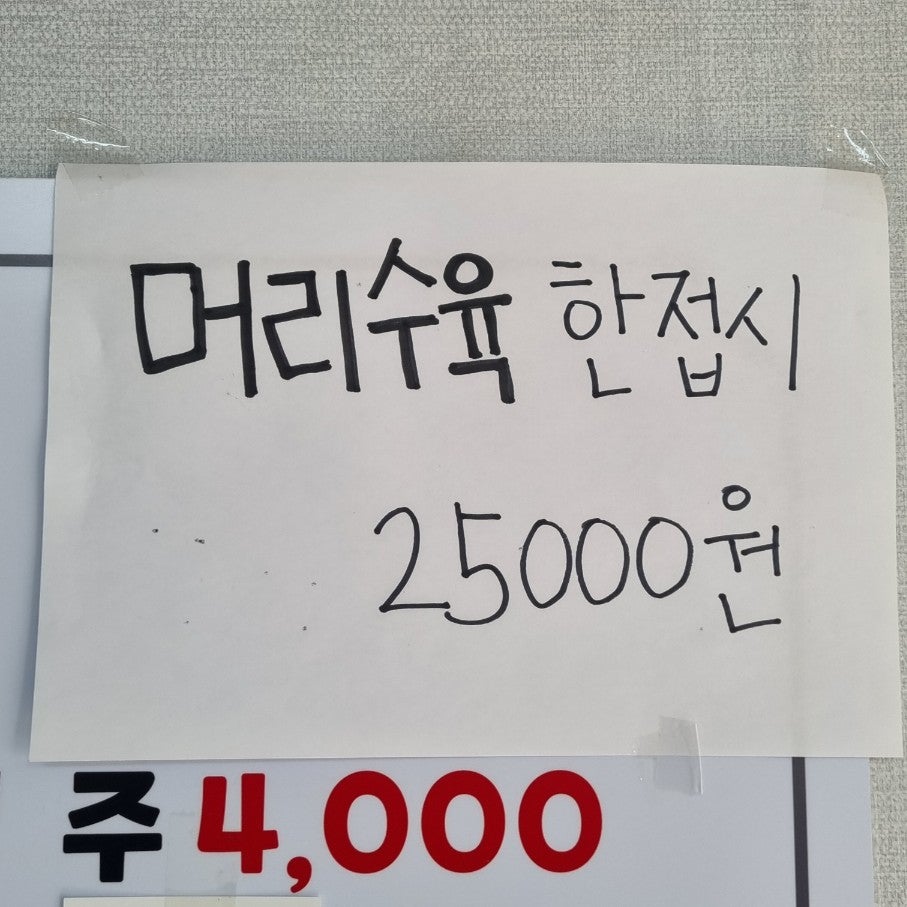 머리수육 한접시
25000원
주 4,000